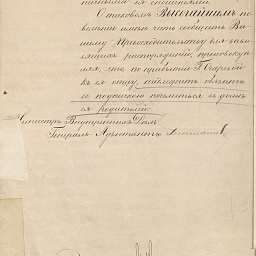 О таковомъ Высочайшемъ по-
велѣнiи имѣю честь сообщить Ва-
шему Превосходительству для зави-
сящихъ распоряженiй, присовокуп-
ляя, что, по прибытiи Г. Огаревой
къ ея отцу, надлежитъ обязать
ее подпискою поселиться въ домѣ
ея родителей.
Министръ Внутреннихъ Дѣлъ
Генералъ Адъютантъ